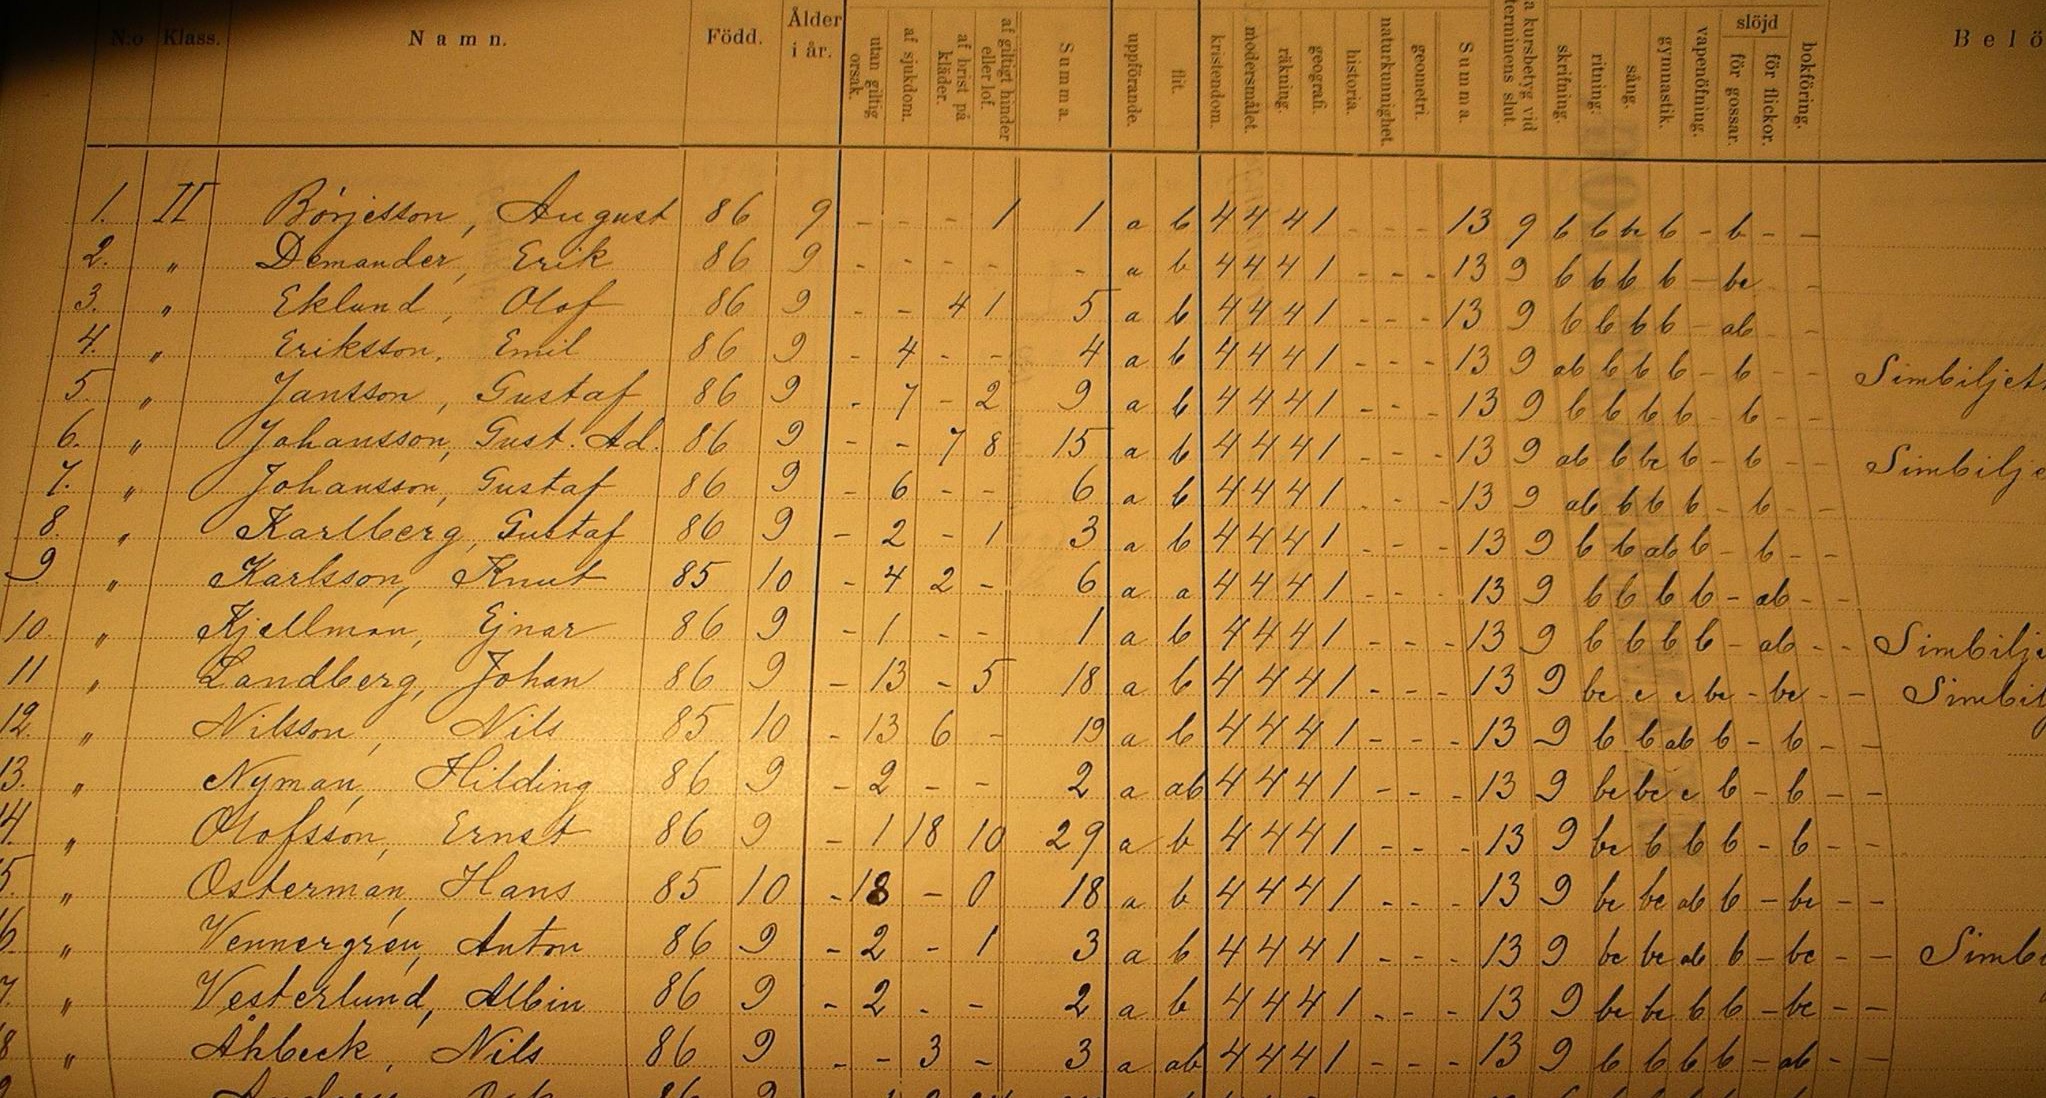 N:o Klass. Namn. Född. Ålder i år. utan giltig orsak. af sjukdom. af brist på kläder. af giltigt hinder eller lof. Summa. uppförande. flit. kristendom. modersmålet. räkning. geografi. historia. naturkunnighet. geometri. Summa. a kursbetyg vid terminens slut. skrifning. ritning. sång. gymnastik. vapenöfning. slöjd för gossar. för flickor. bokföring. Belö
1. II Börjesson, August 86 9 - - - 1 1 a b 4 4 4 1 - - - 13 9 b b bc b - b - -
2. " Demander, Erik 86 9 - - - - - a b 4 4 4 1 - - - 13 9 b b b b - bc -
3. " Eklund, Olof 86 9 - - 4 1 5 a b 4 4 4 1 - - - 13 9 b b b b - ab -
4. " Eriksson, Emil 86 9 - 4 - - 4 a b 4 4 4 1 - - - 13 9 ab b b b - b - - Simbiljett
5 " Jansson, Gustaf 86 9 - 7 - 2 9 a b 4 4 4 1 - - - 13 9 b b b b - b -
6. " Johansson, Gust. Ad. 86 9 - - 7 8 15 a b 4 4 4 1 - - - 13 9 ab b bc b - b - - Simbilje
7. " Johansson, Gustaf 86 9 - 6 - - 6 a b 4 4 4 1 - - - 13 9 ab b b b - b - -
8. " Karlberg, Gustaf 86 9 - 2 - 1 3 a b 4 4 4 1 - - - 13 9 b b ab b - b - -
9 " Karlsson, Knut 85 10 - 4 2 - 6 a a 4 4 4 1 - - - 13 9 b b b b - ab - -
10. " Kjellman, Ejnar 86 9 - 1 - - 1 a b 4 4 4 1 - - - 13 9 b b b b - ab - - Simbilje
11 " Landberg, Johan 86 9 - 13 - 5 18 a b 4 4 4 1 - - - 13 9 bc c c bc - bc - - Simbil
12. " Nilsson, Nils 85 10 - 13 6 - 19 a b 4 4 4 1 - - - 13 9 b b ab b - b - -
13. " Nyman, Hilding 86 9 - 2 - - 2 a ab 4 4 4 1 - - - 13 9 bc bc c b - b - -
14. " Olofsson, Ernst 86 9 - 1 18 10 29 a b 4 4 4 1 - - - 13 9 bc b b b - b - -
5. " Österman, Hans 85 10 - 18 - 0 18 a b 4 4 4 1 - - - 13 9 bc bc ab b - bc - -
6. " Vennergren, Anton 86 9 - 2 - 1 3 a b 4 4 4 1 - - - 13 9 bc bc ab b - bc - - Simb
7. " Vesterlund, Albin 86 9 - 2 - - 2 a b 4 4 4 1 - - - 13 9 bc bc b b - bc - -
8 " Åhbeck, Nils 86 9 - - 3 - 3 a ab 4 4 4 1 - - - 13 9 b b b b - ab - -